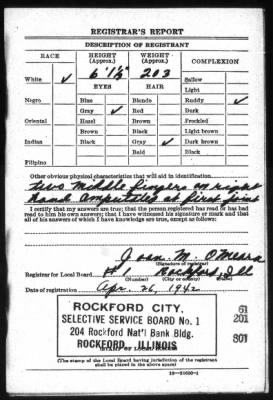 REGISTRAR'S REPORT
DESCRIPTION OF REGISTRANT
RACE HEIGHT (Approx.) WEIGHT (Approx.) COMPLEXION
White ✓ 6' 1½" 203 Sallow
Light
EYES HAIR
Negro Blue Blonde Ruddy ✓
Gray ✓ Red Dark
Oriental Hazel Brown Freckled
Brown Black Light brown
Indian Black Gray ✓ Dark brown
Bald Black
Filipino
Other obvious physical characteristics that will aid in identification
two middle fingers on right
hand amputated at first joint
I certify that my answers are true; that the person registered has read or has had
read to him his own answers; that I have witnessed his signature or mark and that
all of his answers of which I have knowledge are true, except as follows:
Joan M. O'Meara
(Signature of registrar)
Registrar for Local Board #1 Rockford, Ill
(Number) (City or county) (State)
Date of registration Apr. 26, 1942
ROCKFORD CITY,
SELECTIVE SERVICE BOARD No. 1
204 Rockford Nat'l Bank Bldg.
ROCKFORD, ILLINOIS
61
201
801
(The stamp of the Local Board having jurisdiction of the registrant
shall be placed in the above space.)